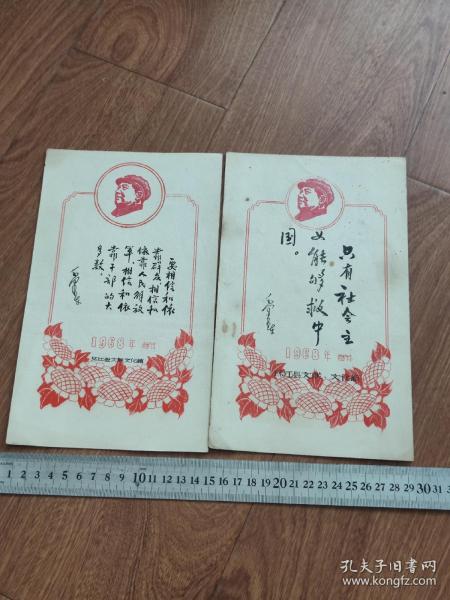 要相信和依
靠群众,相信和
依靠人民解放
军,相信和依
靠干部的大
多数。
毛泽东
1968年
文化館
只有社会主
义能够救中
国。
毛泽东
1968年
1 2 3 4 5 6 7 8 9 10 11 12 13 14 15 16 17 18 19 20 21 22 23 24 25 26 27 28 29 30 31
孔夫子旧书网
www.kongfz.com